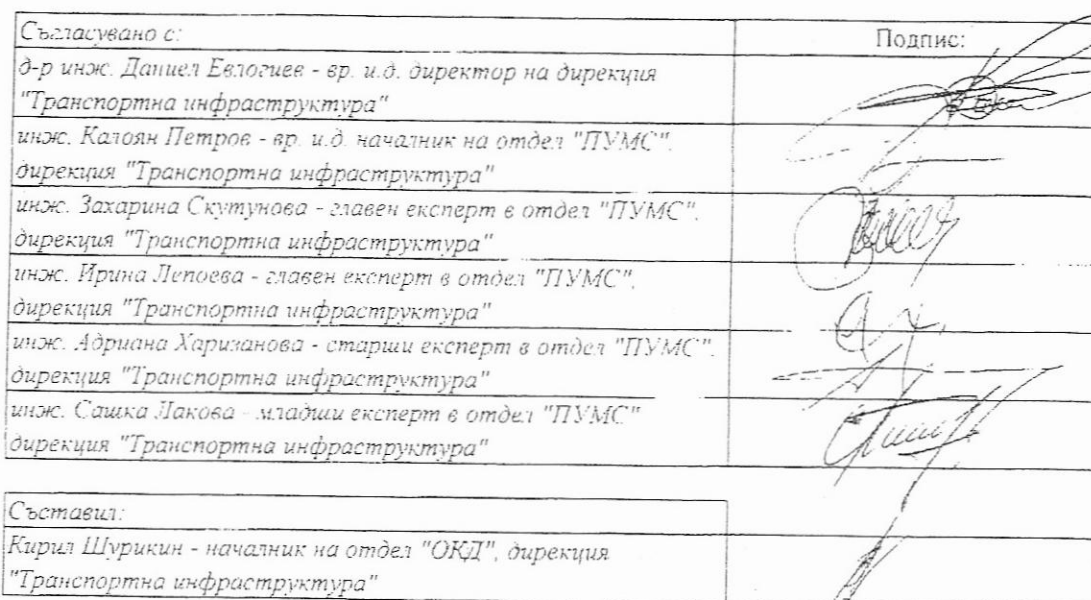 Съгласувано с:
Подпис:
д-р инж. Даниел Евлогиев - вр. и.д. директор на дирекция
"Транспортна инфраструктура"
инж. Калоян Петров - вр. и.д. началник на отдел "ПУМС",
дирекция "Транспортна инфраструктура"
инж. Захарина Скутунова - главен експерт в отдел "ПУМС",
дирекция "Транспортна инфраструктура"
инж. Ирина Лепоева - главен експерт в отдел "ПУМС",
дирекция "Транспортна инфраструктура"
инж. Адриана Харизанова - старши експерт в отдел "ПУМС",
дирекция "Транспортна инфраструктура"
инж. Сашка Лакова - младши експерт в отдел "ПУМС"
дирекция "Транспортна инфраструктура"
Съставил:
Кирил Шурикин - началник на отдел "ОКД", дирекция
"Транспортна инфраструктура"